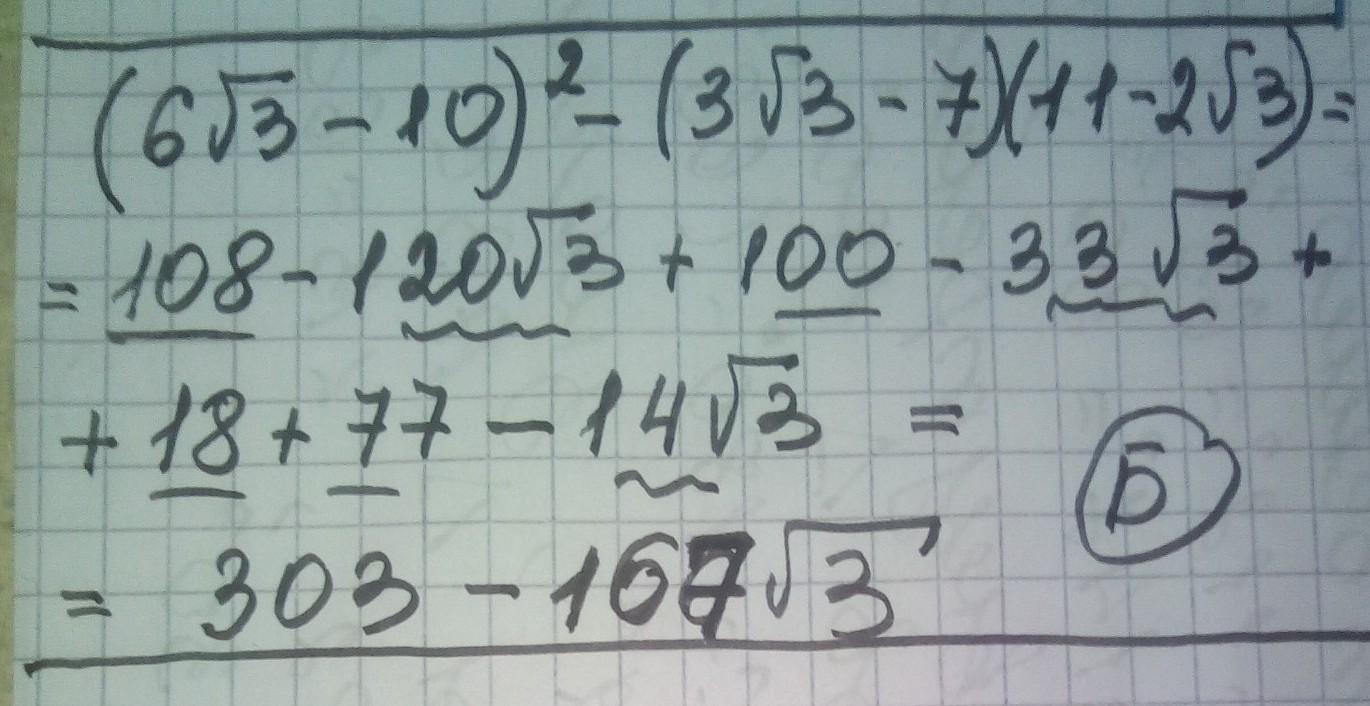 (6√3 - 10)² - (3√3 - 7)(11 - 2√3) =
= 108 - 120√3 + 100 - 33√3 +
+ 18 + 77 - 14√3 =
Б
= 303 - 167√3